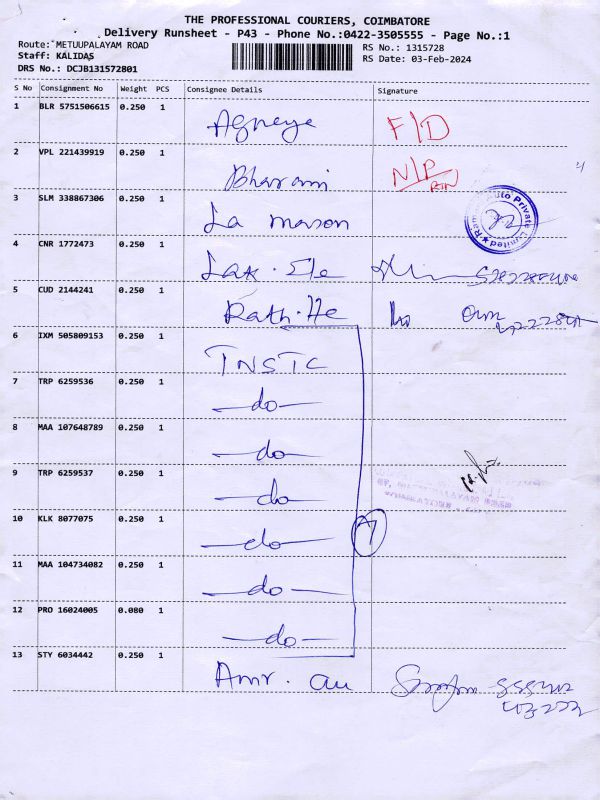 THE PROFESSIONAL COURIERS, COIMBATORE
Delivery Runsheet - P43 - Phone No.:0422-3505555 - Page No.:1
Route: METUUPALAYAM ROAD
Staff: KALIDAS
DRS No.: DCJB131572801
RS No.: 1315728
RS Date: 03-Feb-2024
S No Consignment No Weight PCS Consignee Details Signature
1 BLR 5751506615 0.250 1 Agneye F/D
2 VPL 221439919 0.250 1 Bharani N/P
3 SLM 338867306 0.250 1 La mason
Auto Private Limited
4 CNR 1772473 0.250 1 Lak. Ele
5 CUD 2144241 0.250 1 Rath. He
6 IXM 505809153 0.250 1 TNSTC
7 TRP 6259536 0.250 1 —do—
8 MAA 107648789 0.250 1 —do—
9 TRP 6259537 0.250 1 —do—
10 KLK 8077075 0.250 1 —do— 7
11 MAA 104734082 0.250 1 —do—
12 PRO 16024005 0.080 1 —do—
13 STY 6034442 0.250 1 Amr. au